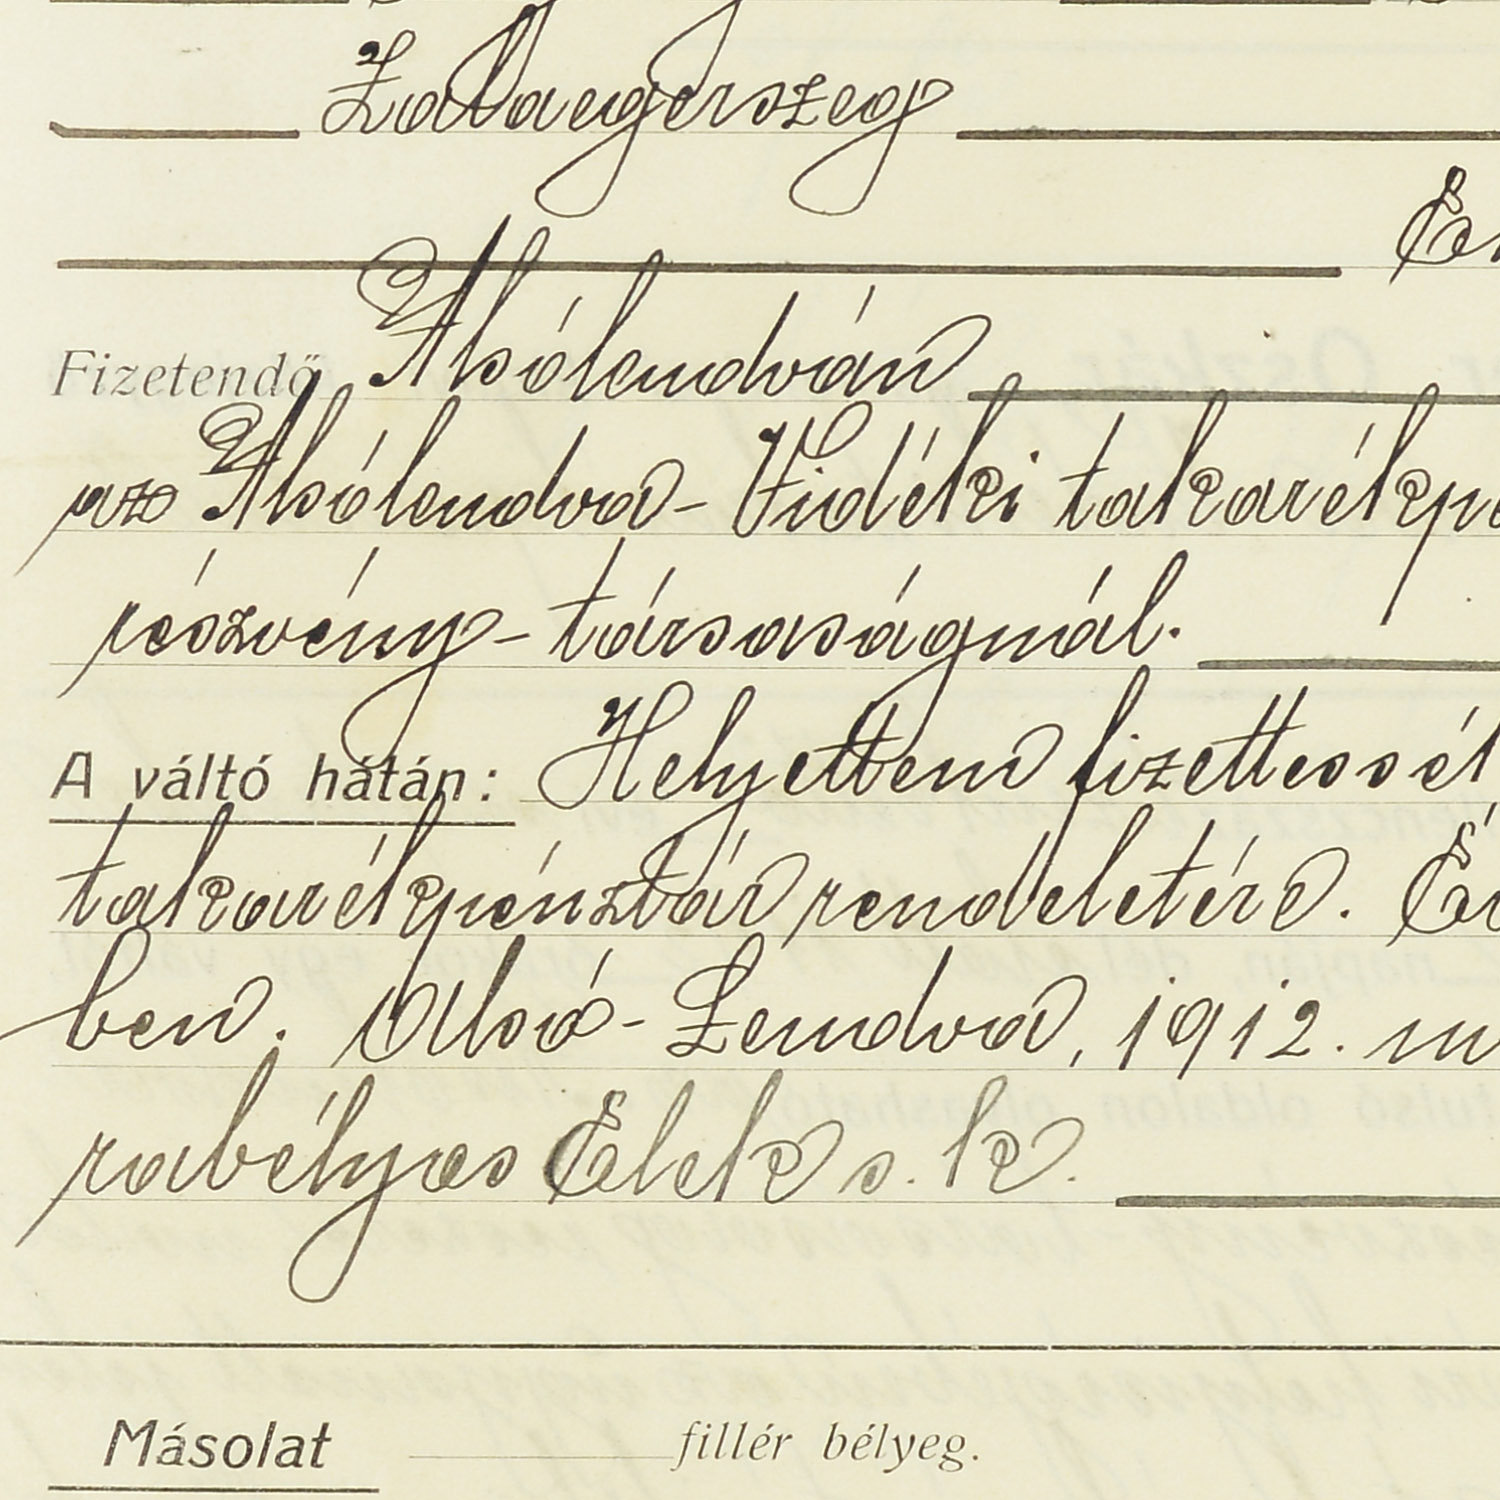 Zalaegerszeg
Fizetendő Alsólendván
az Alsólendva-Vidéki takarékpé
részvény-társaságnál.
A váltó hátán: Helyettem fizettessék
takarékpénztár rendeletére. Ér
ben. Alsó-Lendva, 1912. m
rabélyes Elek s. k.
Másolat fillér bélyeg.